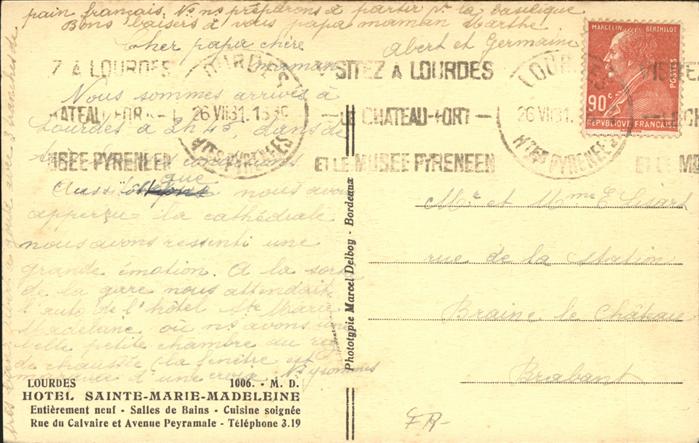 pain français. Ns ns préparons à partir pr la basilique
Bons baisers à vous papa maman Marthe
Abert et Germaine
Cher papa chère
maman
Nous sommes arrivés à
Lourdes à 2h45 dans de
conditions
Aussitôt que nous avons
apperçu la cathédrale
nous avons ressenti une
grande émotion. A la sortie
de la gare nous attendait
l'auto de l'hôtel Ste Marie
Madelaine où ns avons une
belle petite chambre au rez
de chaussée (la fenêtre est
marquée d'une croix. Ns y sommes
VISITEZ À LOURDES
LE CHATEAU-FORT
ET LE MUSEE PYRENEEN
LOURDES
26 VII 31
HTES PYRENEES
MARCELIN BERTHELOT
POSTES
90c
REPVBLIQVE FRANÇAISE
Phototypie Marcel Delboy - Bordeaux
Mr et Mme E.
rue de la Station
Braine le Château
Brabant
FR-
LOURDES 1006. - M. D.
HOTEL SAINTE-MARIE-MADELEINE
Entièrement neuf - Salles de Bains - Cuisine soignée
Rue du Calvaire et Avenue Peyramale - Téléphone 3.19